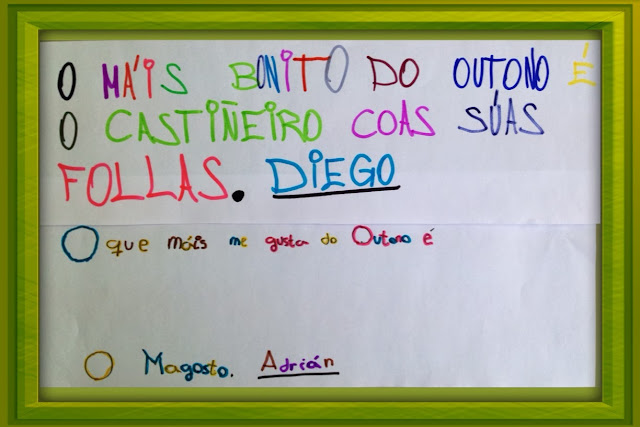 O MÁIS BONITO DO OUTONO É
O CASTIÑEIRO COAS SÚAS
FOLLAS. DIEGO
O que máis me gusta do Outono é
O Magosto. Adrián